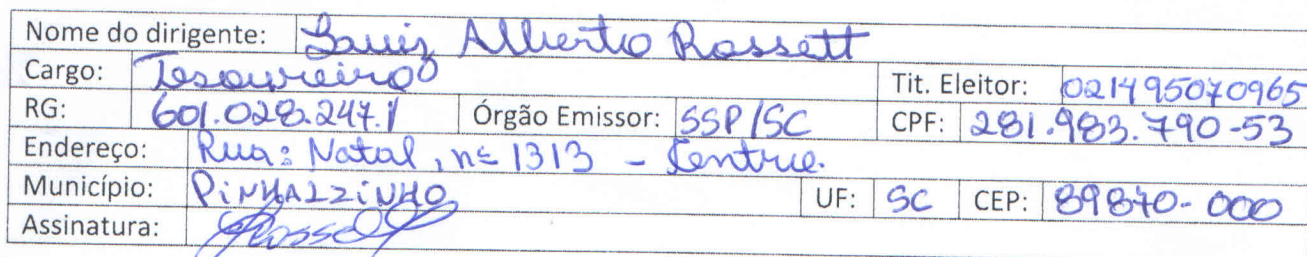 Nome do dirigente: Lauiz Alberto Rossett
Cargo: Tesoureiro Tit. Eleitor: 021495070965
RG: 601.028.247.1 Órgão Emissor: SSP/SC CPF: 281.983.790-53
Endereço: Rua: Natal, nº 1313 - Centro.
Município: PiNHALZiNHO UF: SC CEP: 89870-000
Assinatura: